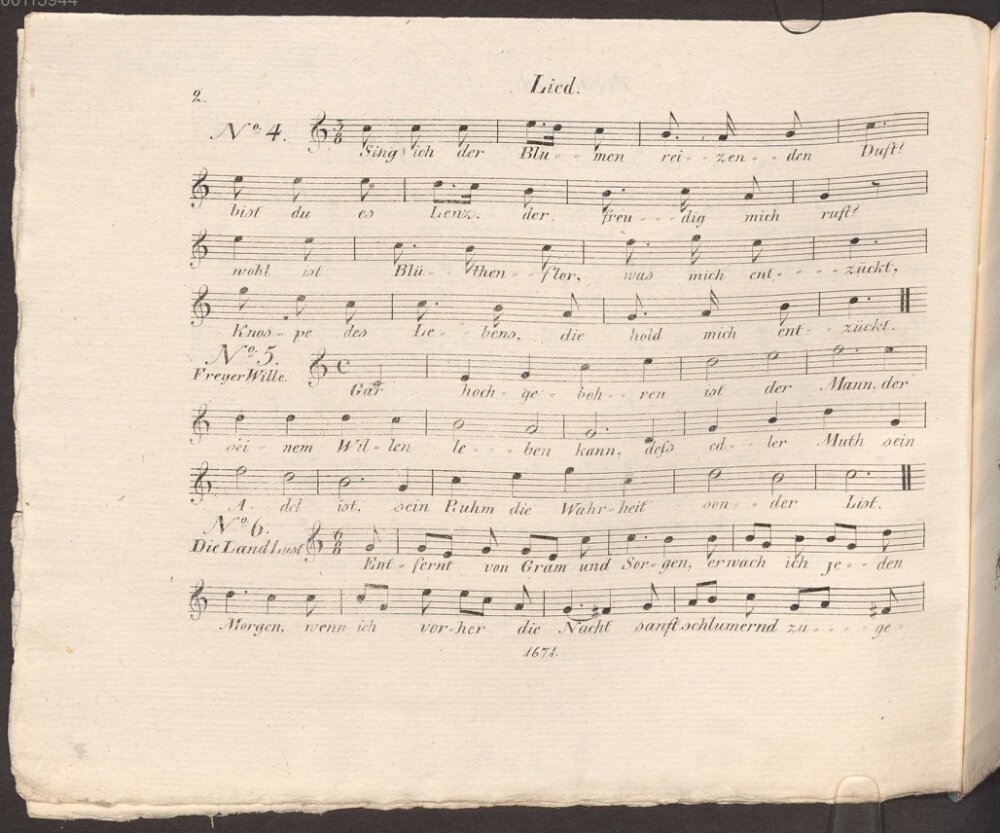 00113944
2.
Lied.
No. 4.
Sing ich der Blu - - men rei - - zen - - den Duft!
bist du es Lenz. - der. freu - - - dig mich ruft?
wohl ist Blü - - then - - flor, was mich ent - - - - zückt,
Knos - pe des Le - - bens, die hold mich ent - - zückt.
No. 5.
Freyer Wille.
Gar hoch - ge - boh - - ren ist der Mann, der
sei - - nem Wil - len le - - ben kann, deſs ed - - - ler Muth sein
A - del ist, sein Ruhm die Wahr - heit son - - der List.
No. 6.
Die Land Lust
Ent - fernt von Gram und Sor - gen, erwach ich je - - den
Morgen, wenn ich vor - her die Nacht sanft schlumernd zu - - - - ge -
1671.